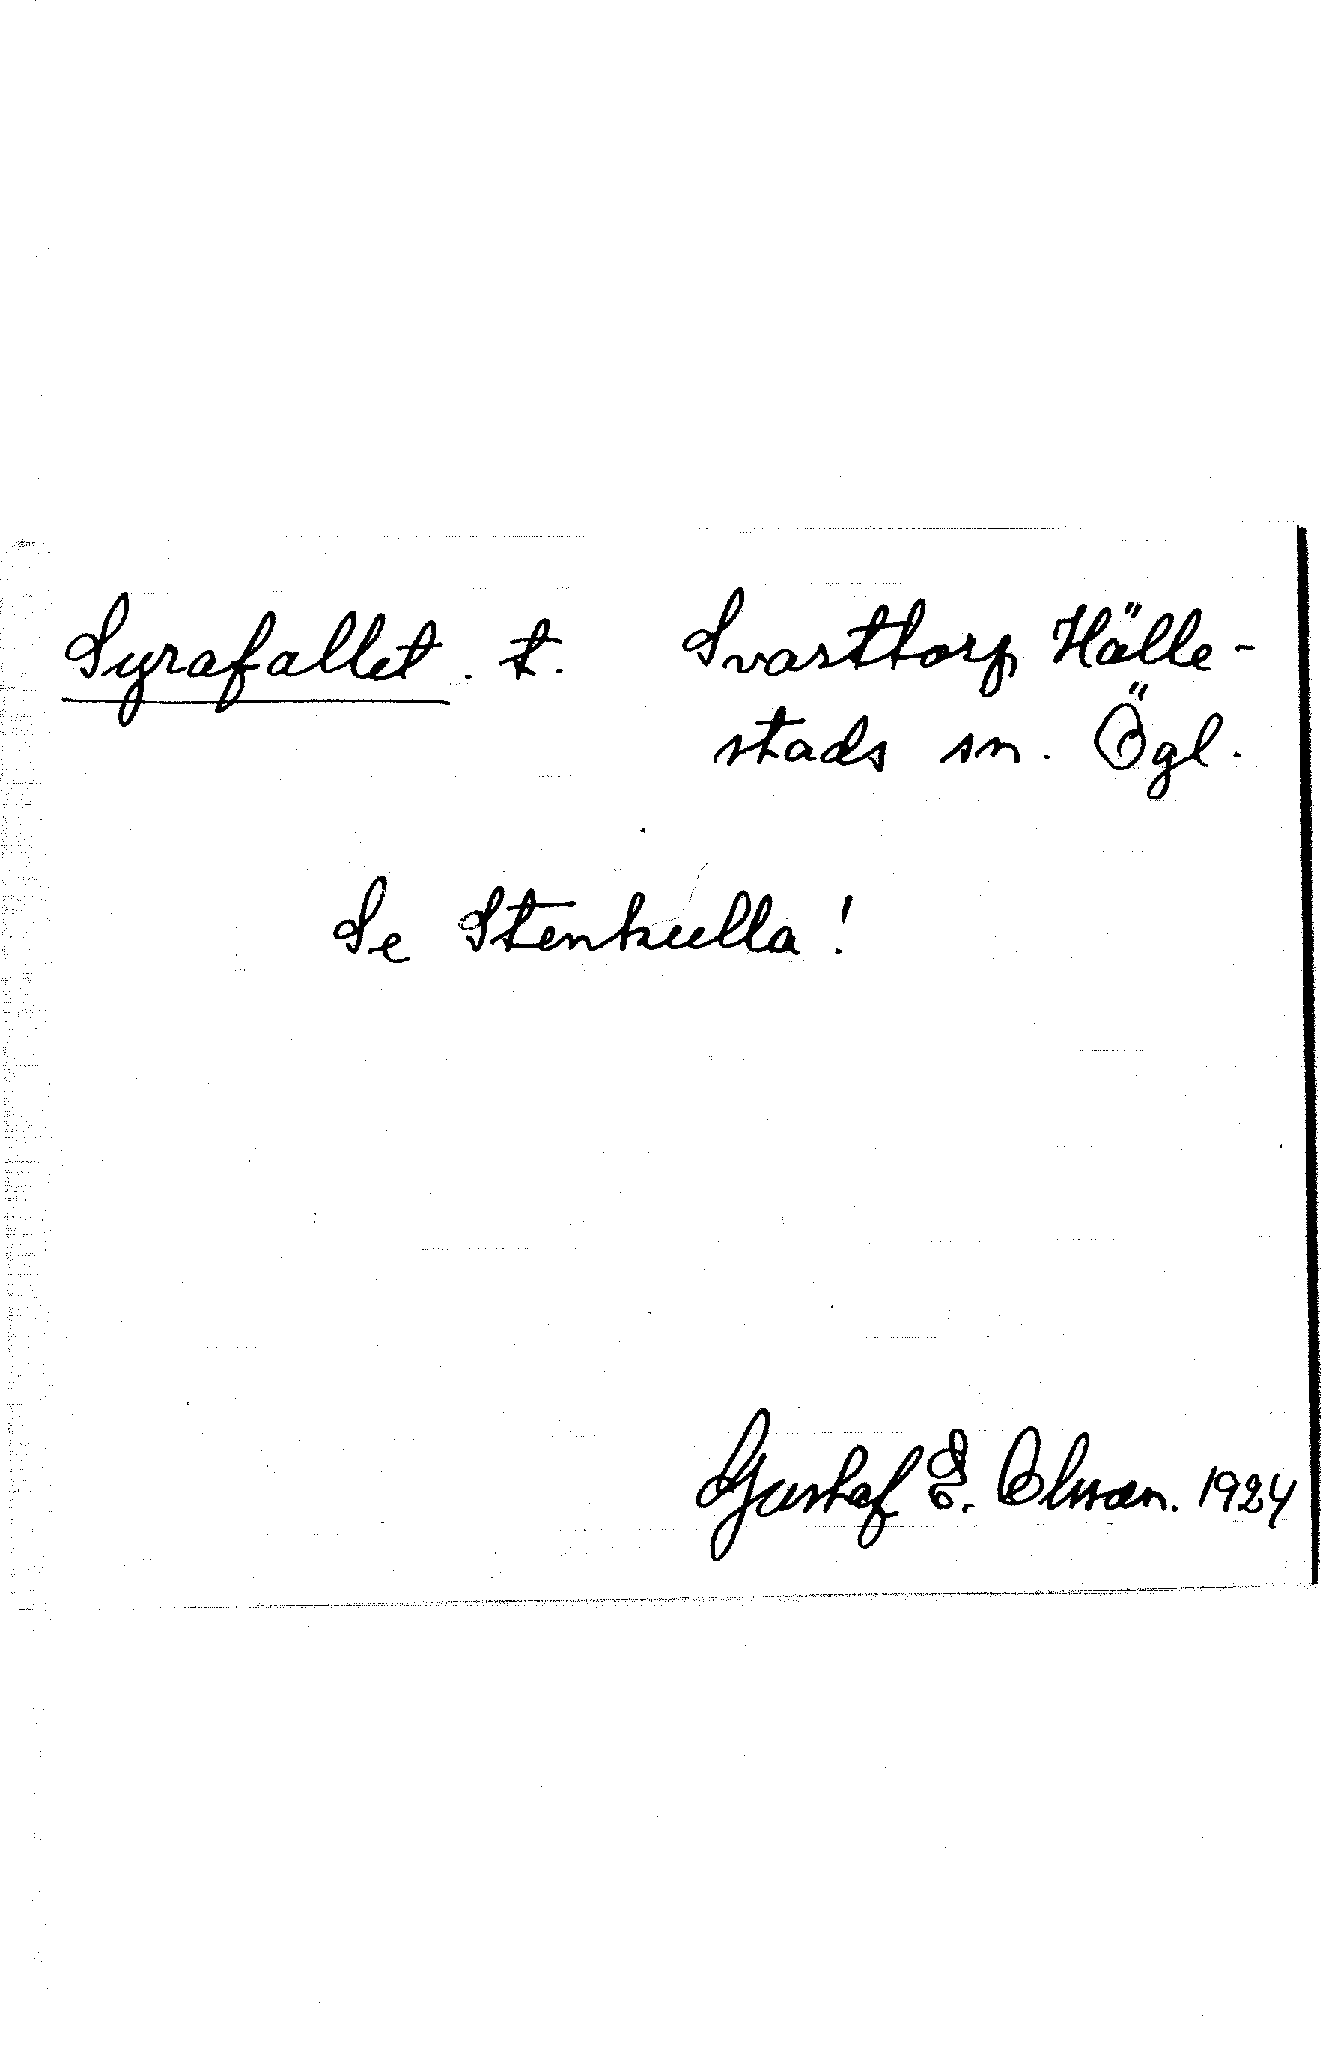 Syrafallet. t. Svarttorp, Hälle-
stads sn. Ögl.
Se Stenkulla!
Gustaf E. Olsson. 1924